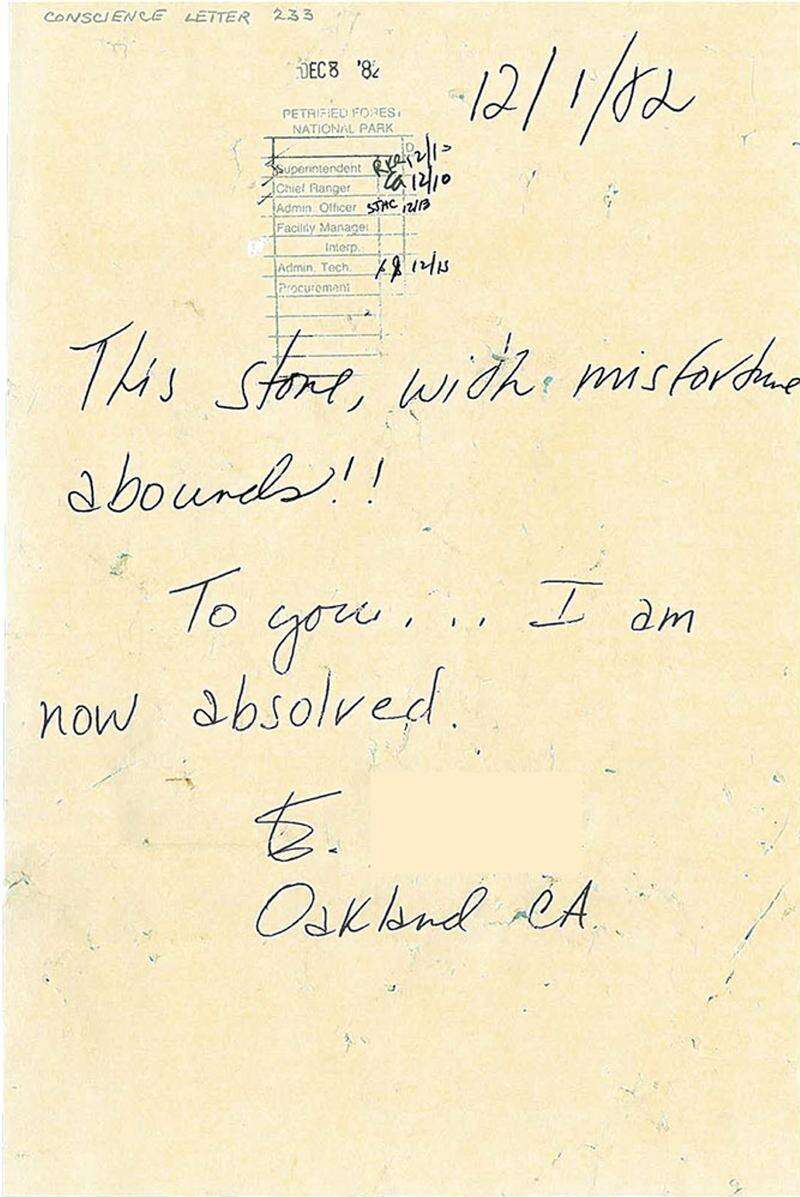 CONSCIENCE LETTER 233
DEC 8 '82
12/1/82
PETRIFIED FOREST
NATIONAL PARK
Superintendent 12/10
Chief Ranger CG 12/10
Admin. Officer 12/13
Facility Manager
Interp.
Admin. Tech. 12/15
Procurement
This stone, with misfortune
abounds!!
To you... I am
now absolved.
Oakland CA.